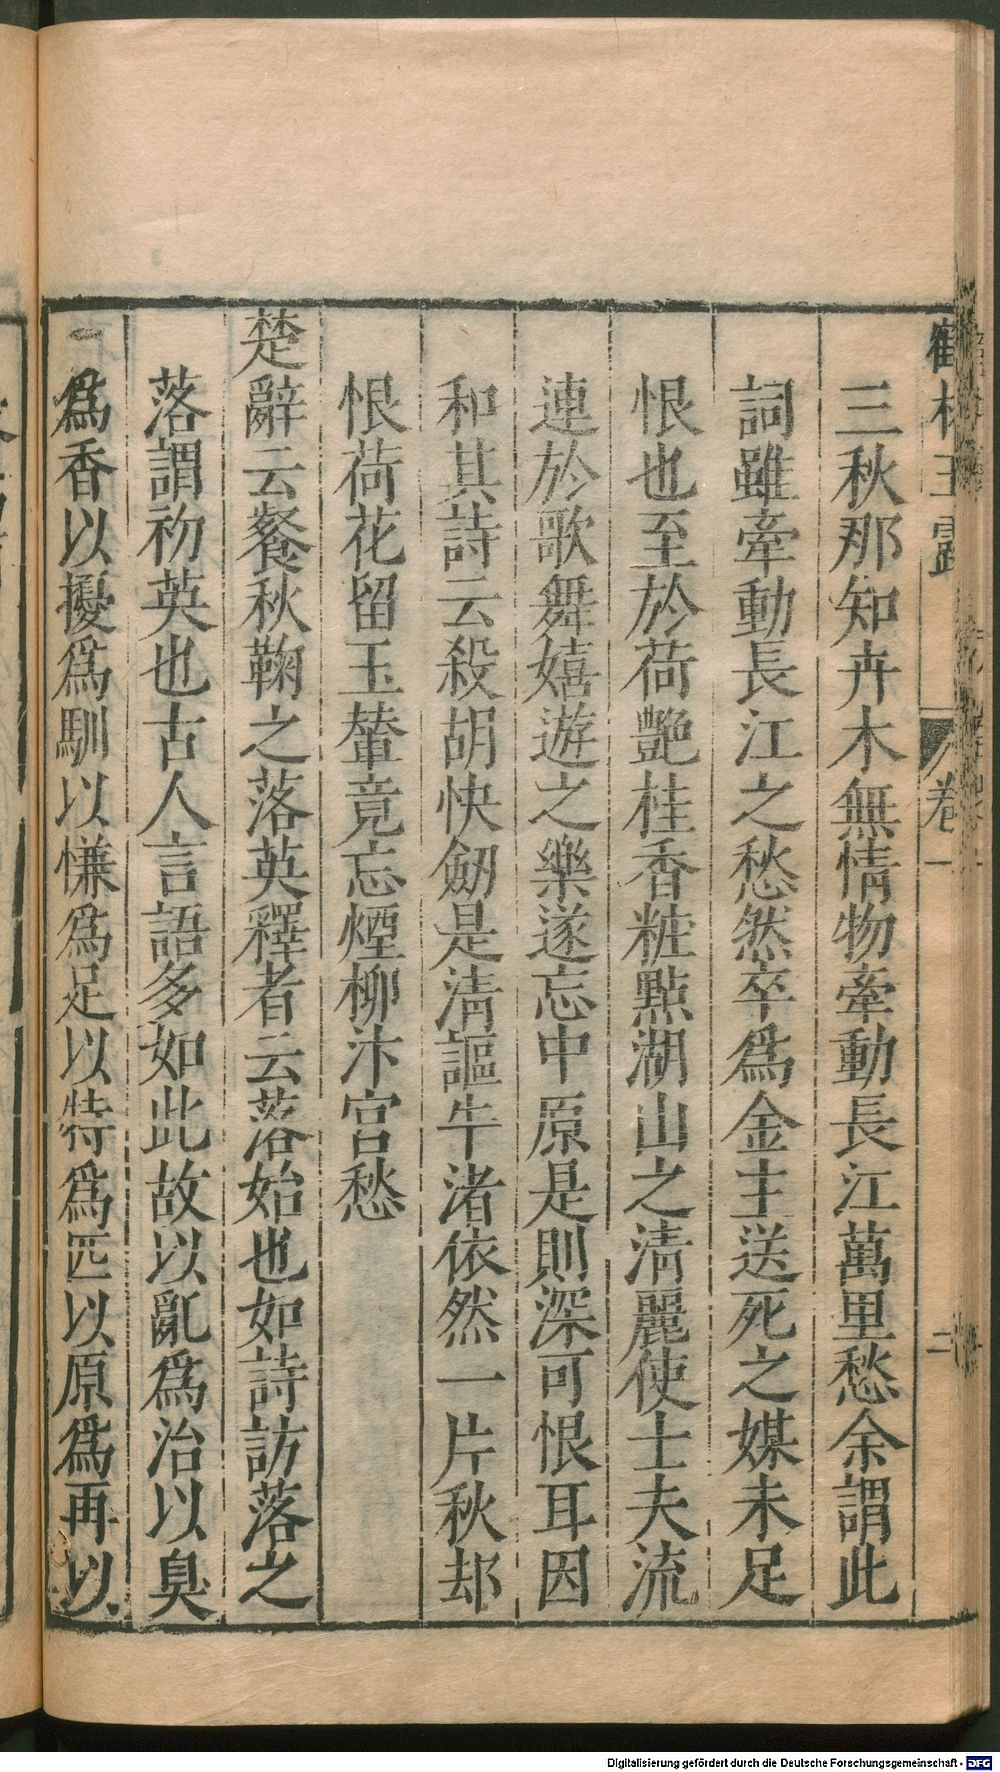 鶴林玉露 卷一 二
三秋那知卉木無情物牽動長江萬里愁余謂此
詞雖牽動長江之愁然卒爲金主送死之媒未足
恨也至於荷艷桂香粧點湖山之淸麗使士夫流
連於歌舞嬉遊之樂遂忘中原是則深可恨耳因
和其詩云殺胡快劒是淸謳牛渚依然一片秋却
恨荷花留玉輦竟忘煙柳汴宮愁
楚辭云餐秋鞠之落英釋者云落始也如詩訪落之
落謂初英也古人言語多如此故以亂爲治以臭
爲香以擾爲馴以慊爲足以特爲匹以原爲再以
Digitalisierung gefördert durch die Deutsche Forschungsgemeinschaft - DFG